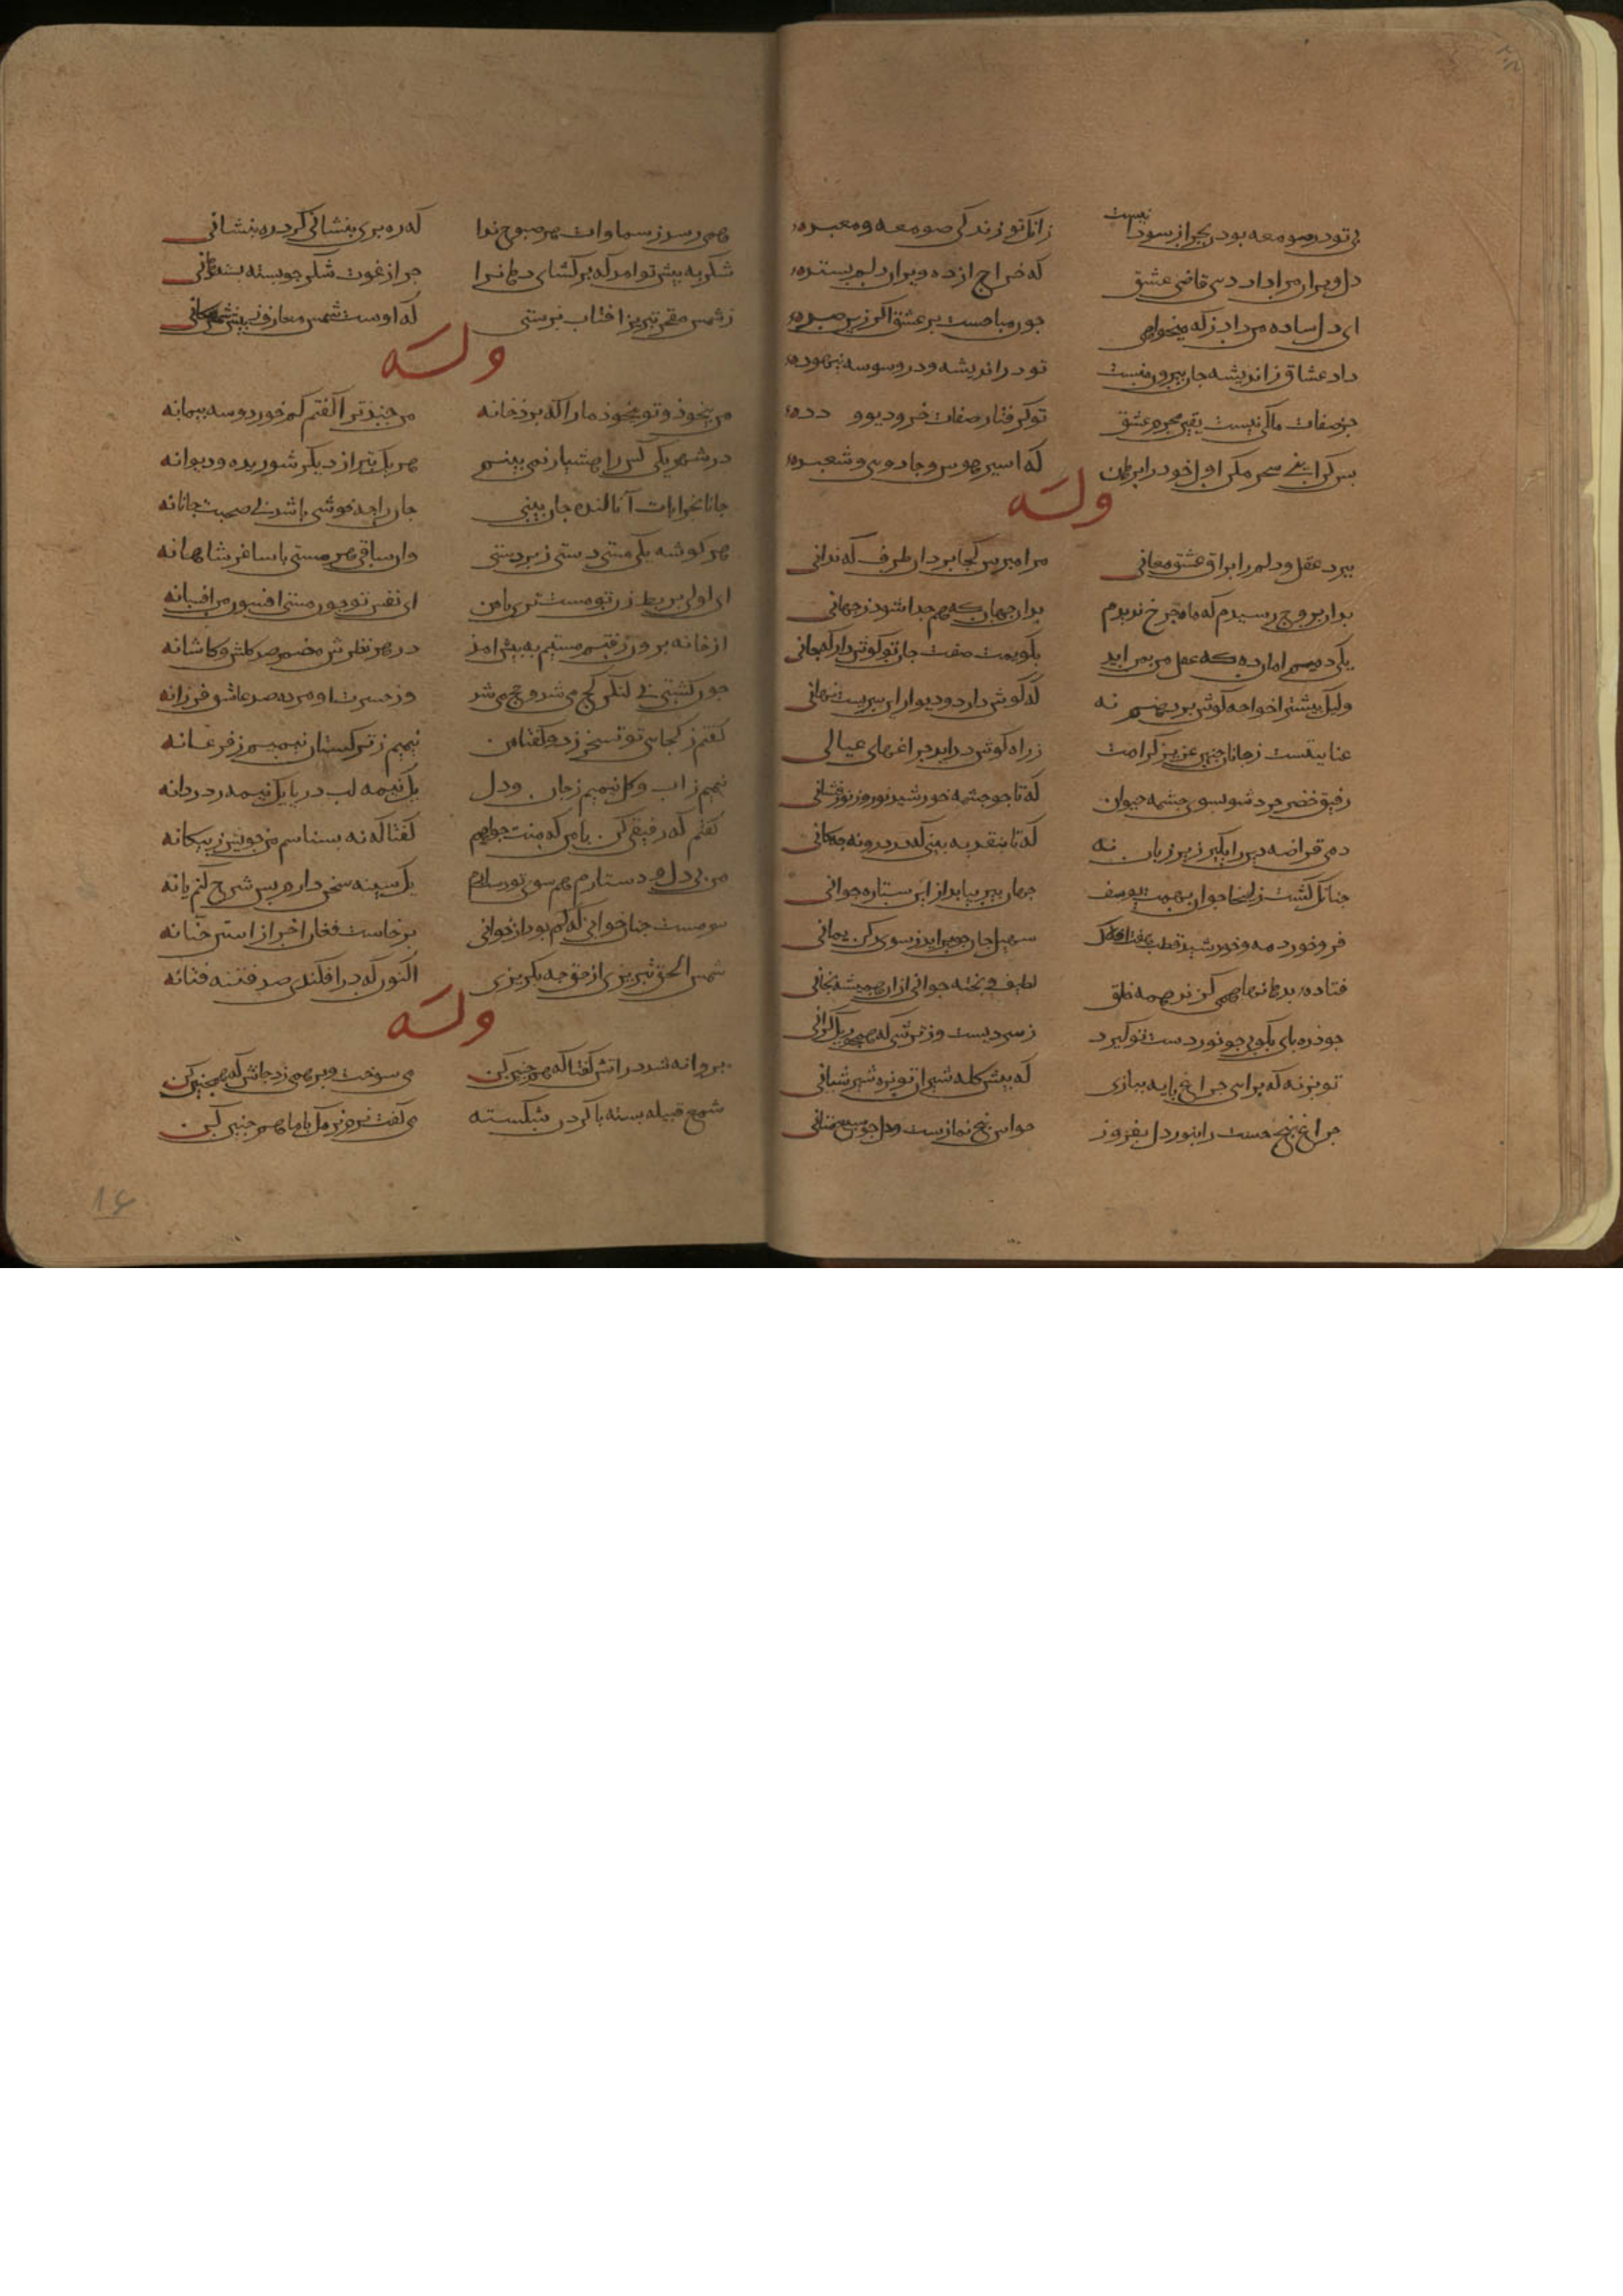 بی تو در صومعه بودن بجز از سودا نیست زانک تو زندگی صومعه و معبده
دل ویران مرا داد ده ای قاضی عشق که خراج از ده ویران دلم بستده
ای دل ساده من داد ز که میخواهی خون مباحست بر عشق اکر زین رمه
داد عشاق ز اندیشه جان بیرونست تو در اندیشه و در وسوسه بیهوده
جز صفات ملکی نیست یقین محرم عشق تو کرفتار صفات خر و دیو و دده
بس کن این سحر مکن اول خود را برهان که اسیر هوس و جادوی و شعبده
وله
ببرد عقل و دلم را براق عشق معانی مرا ببرس کجا برد آن طرف که ندانی
بدان رواق رسیدم که ماه و چرخ ندیدم بدان جهان که جهان هم جدا شود ز جهانی
یکی دمیم امان ده که عقل من بمن آید بکویمت صفت جان تو کوش دار که جانی
ولیک پیشتر آ خواجه کوش بر دهنم نه که کوش دارد دیوار این سریست نهانی
عنایتیست ز جانان چنین عزیز کرامت ز راه کوش درآید چراغهای عیانی
رفیق خضر خرد شو بسوی چشمه حیوان که تا چو چشمه خورشید روز نور فشانی
چنانک کشت زلیخا جوان بهمت یوسف جهان پیر بیابد از این ستاره جوانی
فرو خورد مه و خورشید قطب هفت فلک سهیل جان چو برآید ز سوی رکن یمانی
دمی قراضه دین را بکیر زیر زبان نه که تا بنقد ببینی که در درونه چه کانی
فتاده بدهانها همی کزند همه خلق لطیف و پخته چو نانی از آن همیشه چنانی
چو ذره پای بکوبی چو نور دست تو کیرد ز سردیست و ز تری که همچو ریک کرانی
تو بز نه که برآیی چراغ پایه ببازی که پیش کله شیران تو نره شیر شبانی
چراغ پنج حست را بنور دل بفروز حواس پنج نمازست و دل چو سبع مثانی
همی رسد ز سماوات هر صبوح ندا که ره بری بنشانی کرد ره بنشانی
شکر به پیش تو آمد که برکشای دهان را چرا ز عوت شکر چو پسته بسته دهانی
ز شمس مفخر تبریز آفتاب پرستی که اوست شمس معارف رئیس شمس مکانی
وله
من بیخود و تو بیخود ما را که برد خانه من چند ترا کفتم کم خور دو سه پیمانه
در شهر یکی کس را هشیار نمی بینم هر یک بتر از دیکر شوریده و دیوانه
جانا بخرابات آ تا لذت جان بینی جان را چه خوشی باشد بی صحبت جانانه
هر کوشه یکی مستی دستی ز بر دستی وان ساقی هر مستی با ساغر شاهانه
ای لولی بربط زن تو مست تری یا من ای نفس تو چون مستی افسون من افسانه
از خانه برون رفتم مستیم به پیش آمد در هر نظرش مضمر صد کلشن و کاشانه
چون کشتی بی لنکر کج می شد و مج می شد وز حسرت او مرده صد عاشق فرزانه
کفتم ز کجایی تو تسخر زد و کفتا من نیمیم ز ترکستان نیمیم ز فرغانه
نیمیم ز آب و کل نیمیم ز جان و دل یک نیمه لب دریا یک نیمه دردانه
کفتم که رفیقی کن با من که منت خواهم کفتا که نه بشناسم من خویش ز بیکانه
من بی دل و دستارم هم سوی تو رسالارم یک سینه سخن دارم بس شرح کنم یا نه
سر مست چنان خوانی کی کم بود از خوانی برخاست فغان آخر از استن حنانه
شمس الحق تبریزی از خلق چه بکریزی اکنون که در افکندی صد فتنه فتانه
وله
پروانه شد در آتش کفتا که همچنین کن می سوخت و پر همی زد جانش که همچنین کن
شمع و فتیله بسته با کردن شکسته می کفت نرم نرمک با ما که همچنین کن
۱۶